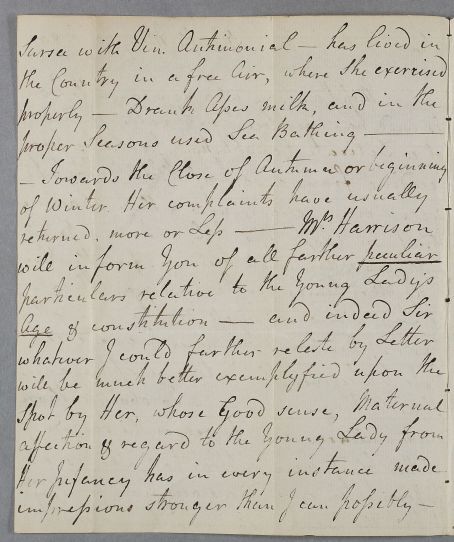 Sarsa with Vin. Antimonial — has lived in
the Country in a free Air, where She exercised
properly — Drank Asses milk, and in the
proper Seasons used Sea Bathing —
— Towards the Close of Autumn or beginning
of Winter Her complaints have usually
returned, more or Less — Mrs Harrison
will inform You of all farther peculiar
particulars relative to the Young Ladys
Age & constitution — and indeed Sir
whatever I could farther relate by Letter
will be much better exemplyfied upon the
Spot by Her, whose Good sense, Maternal
affection & regard to the Young Lady from
Her Infancy has in every instance made
impressions stronger than I can possibly —